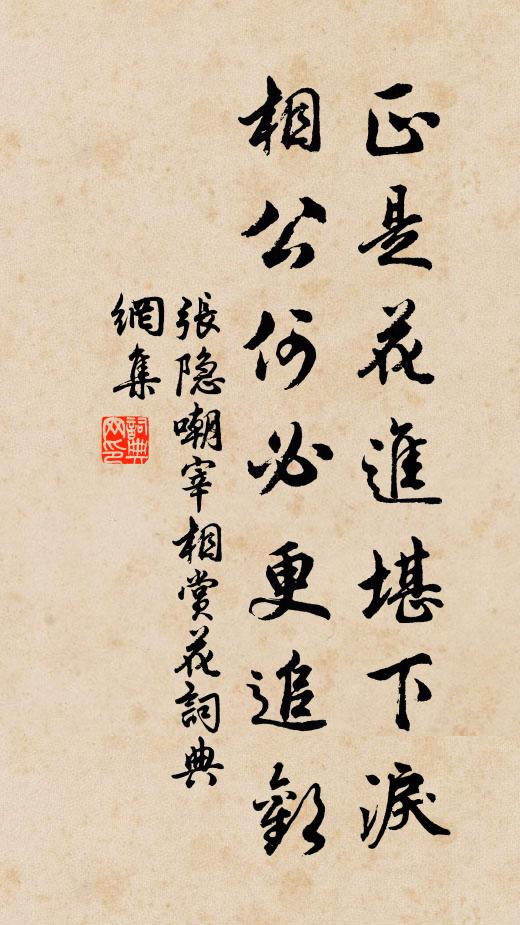 正是花進堪下淚
相公何必更追歡
張隐嘲宰相賞花詞典
網集
詞典
网印